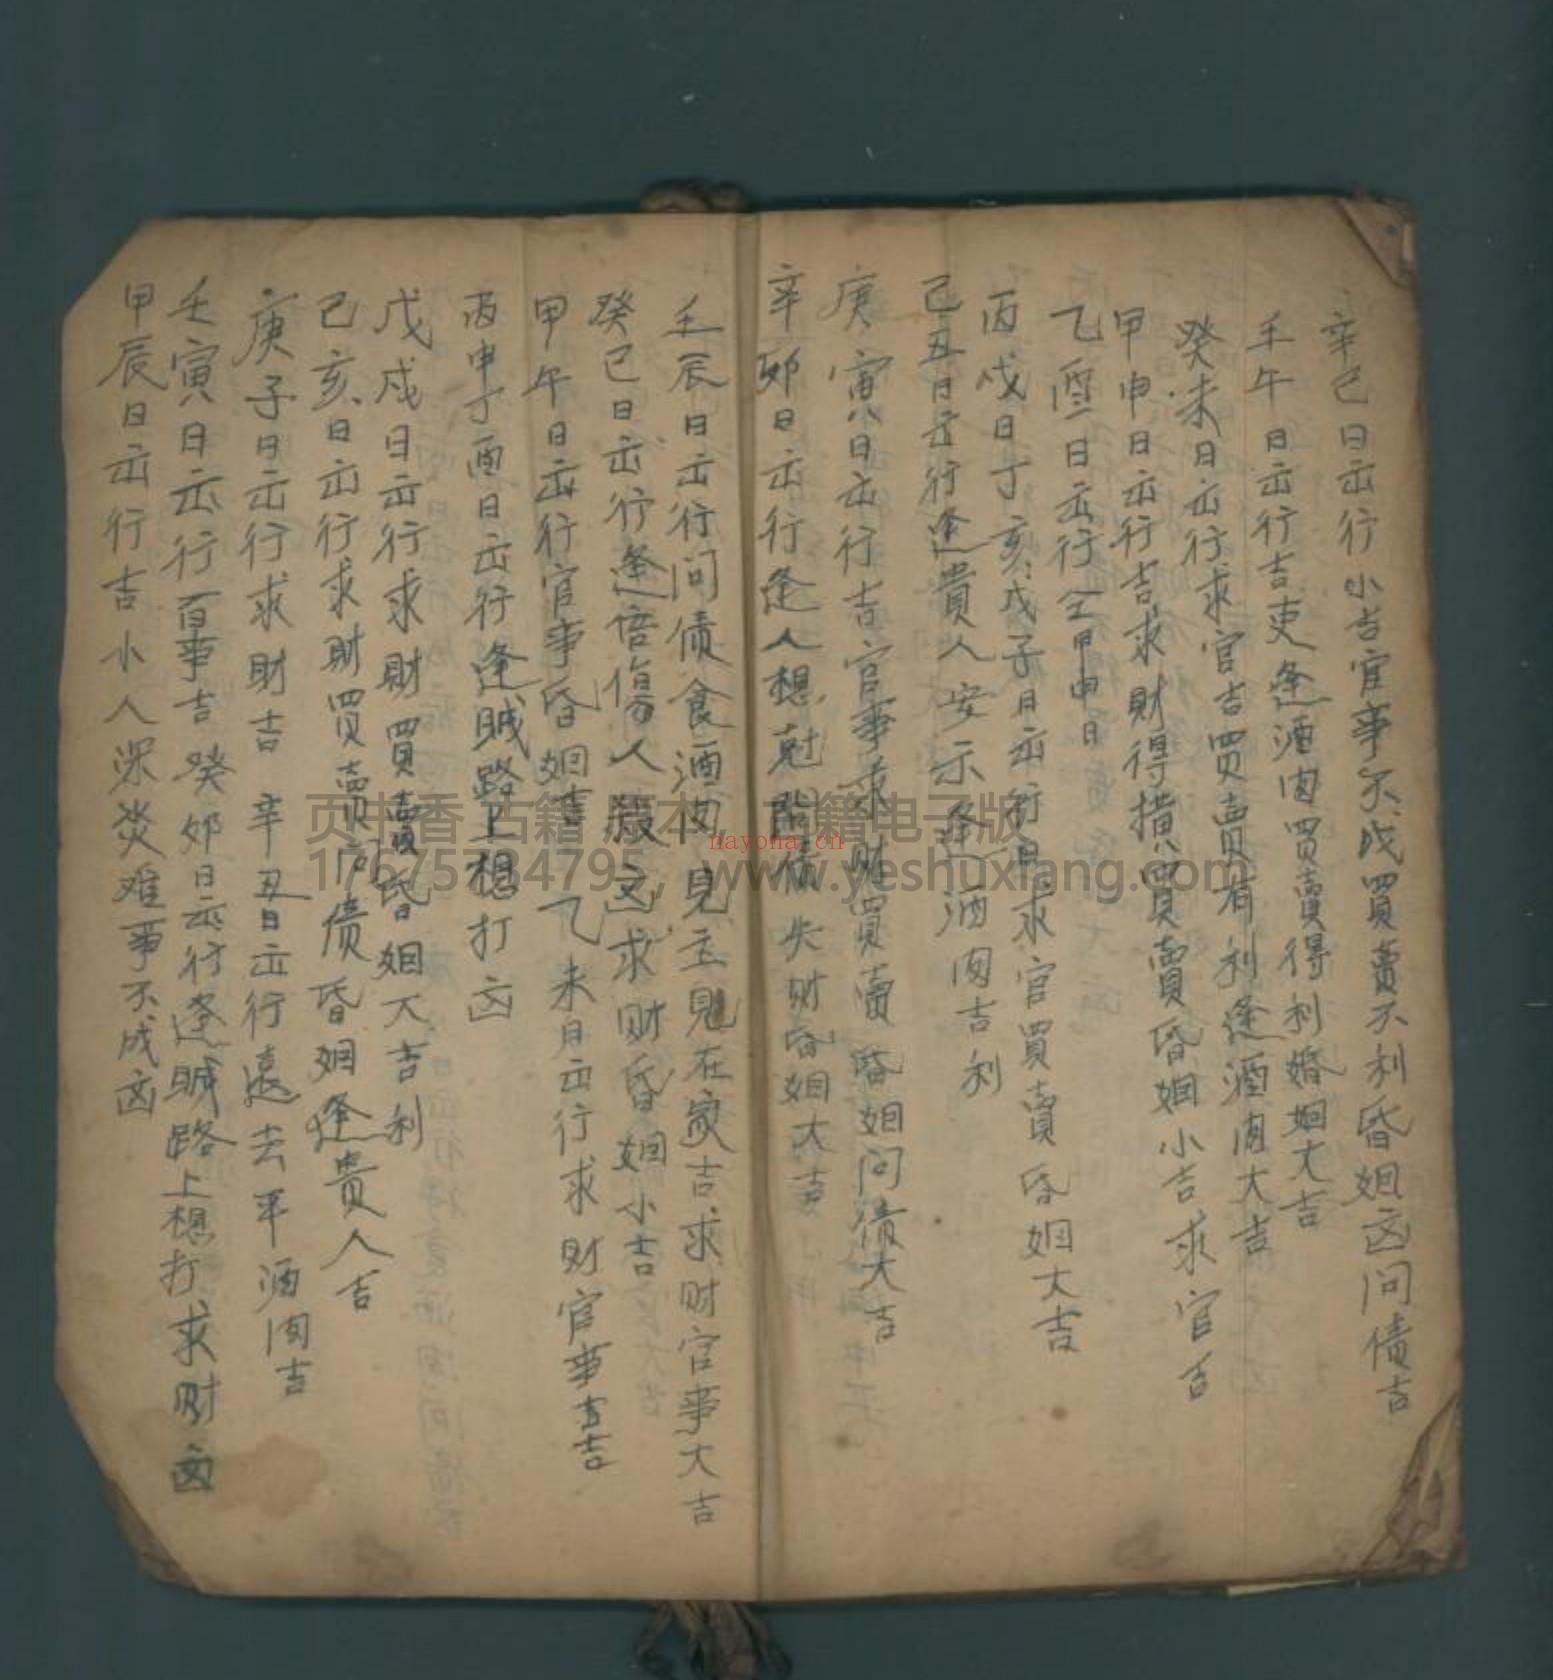 辛巳日出行小吉官事不成買賣不利昏姻凶问债吉
壬午日出行吉吏逢酒肉買賣得利婚姻大吉
癸未日出行求官吉買賣有利逢酒肉大吉
甲申日出行吉求财得横買賣昏姻小吉求官吉
乙酉日出行仝甲申日
丙戌日丁亥戊子日出行日求官買賣昏姻大吉
己丑日出行逢貴人安示逢酒肉吉利
庚寅日出行吉官事求财買賣昏姻问债大吉
辛卯日出行逢人想尅债失财昏姻大吉
壬辰日出行问债食酒肉見在家吉求财官事大吉
癸巳日出行逢傷人殺凶求财昏姻小吉
甲午日出行官事昏姻吉乙未月出行求财官事吉吉
丙申丁酉日出行逢贼路上想打凶
戊戌日出行求财買賣昏姻大吉利
己亥日出行求财買賣问债昏姻逢貴人吉
庚子日出行求财吉辛丑日出行遠去平酒肉吉
壬寅日出行百事吉癸卯日出行逢贼路上想打求财凶
甲辰日出行吉小人深災难事不成凶
页书香古籍
古籍电子版
nayona.cn
www.yeshuxiang.com